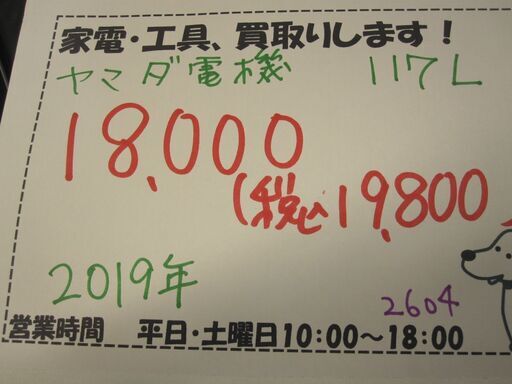 家電・工具、買取りします！
ヤマダ電機 117L
18,000
(税込19,800
2019年
2604
営業時間 平日・土曜日10:00～18:00